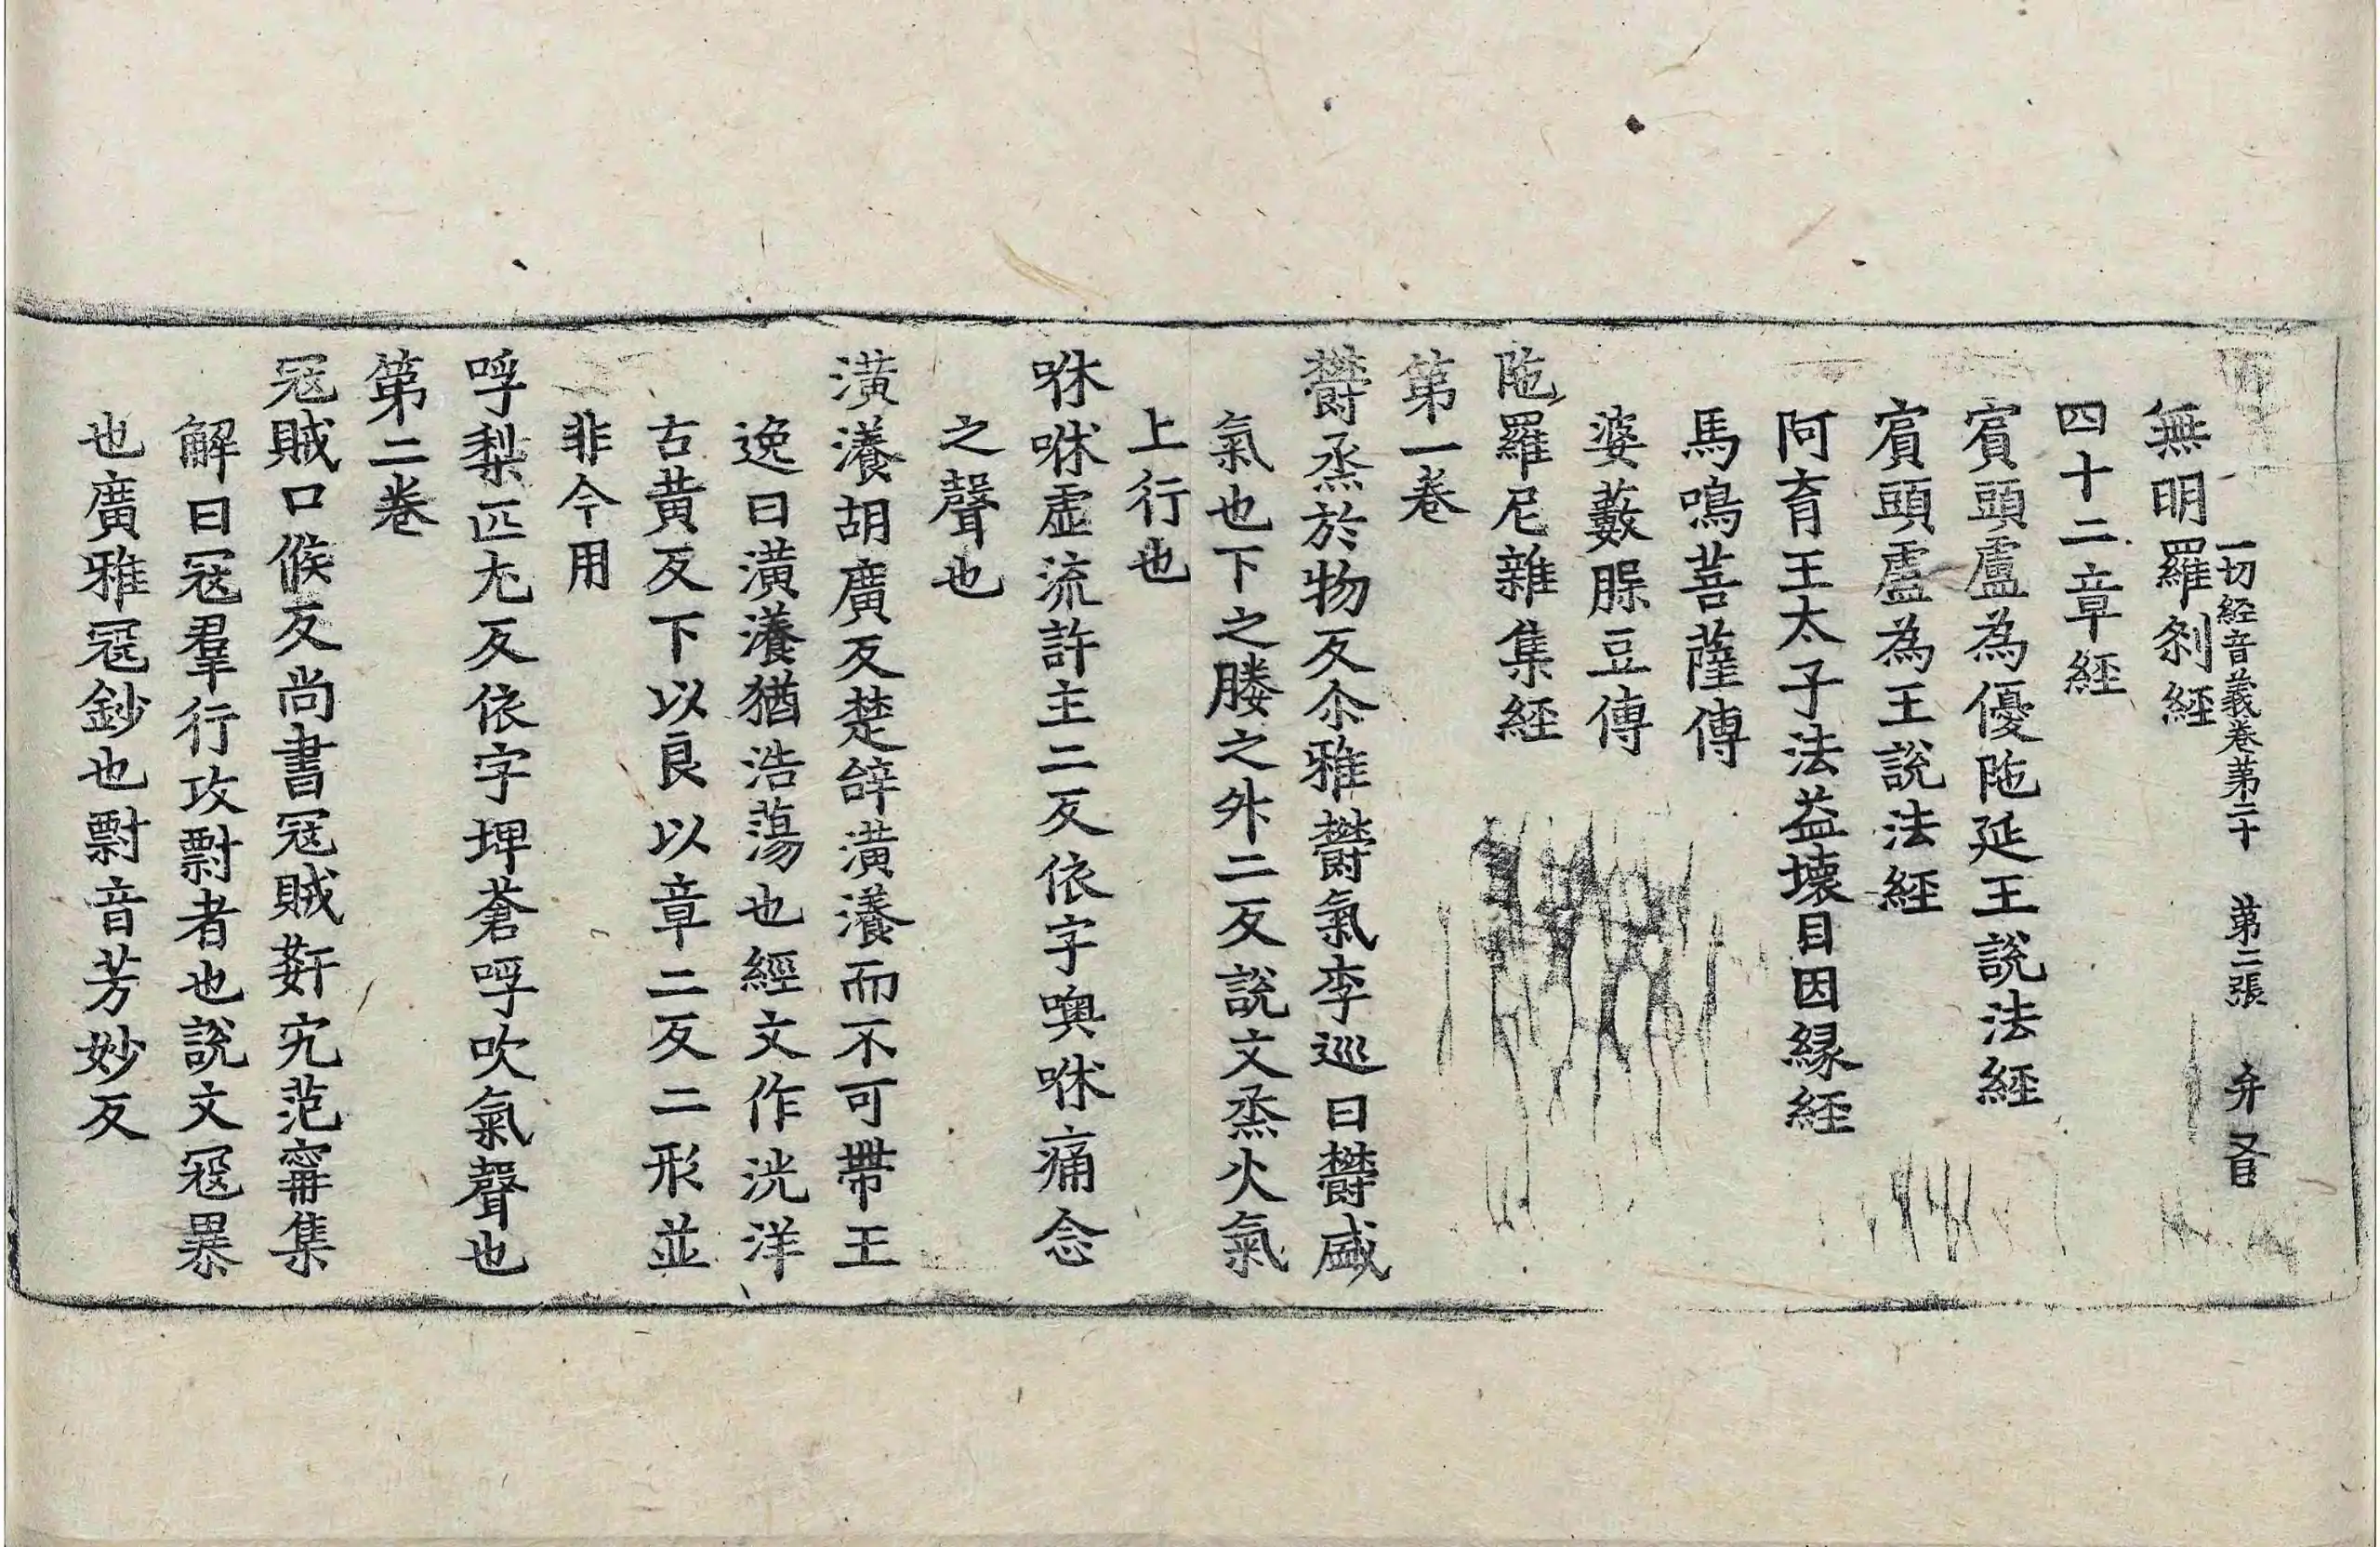 一切経音義卷第二十　第二張　弁
無明羅刹經
四十二章經
賔頭盧為優陁延王說法經
賔頭盧為王說法經
阿育王太子法益壞目因縁經
馬鳴菩薩傳
婆藪脲豆傳
陁羅尼雜集經
第一卷
欝烝於物反尒雅欝氣李巡曰欝盛
氣也下之媵之外二反說文烝火氣
上行也
咻咻虛流許主二反依字噢咻痛念
之聲也
潢瀁胡廣反楚辝潢瀁而不可帶王
逸曰潢瀁猶浩蕩也經文作洸洋
古黃反下以良以章二反二形並
非今用
哹梨匹尤反依字埤蒼哹吹氣聲也
第二卷
冦賊口候反尚書冦賊姧宄范甯集
解曰冦羣行攻剽者也說文冦暴
也廣雅冦鈔也剽音芳妙反